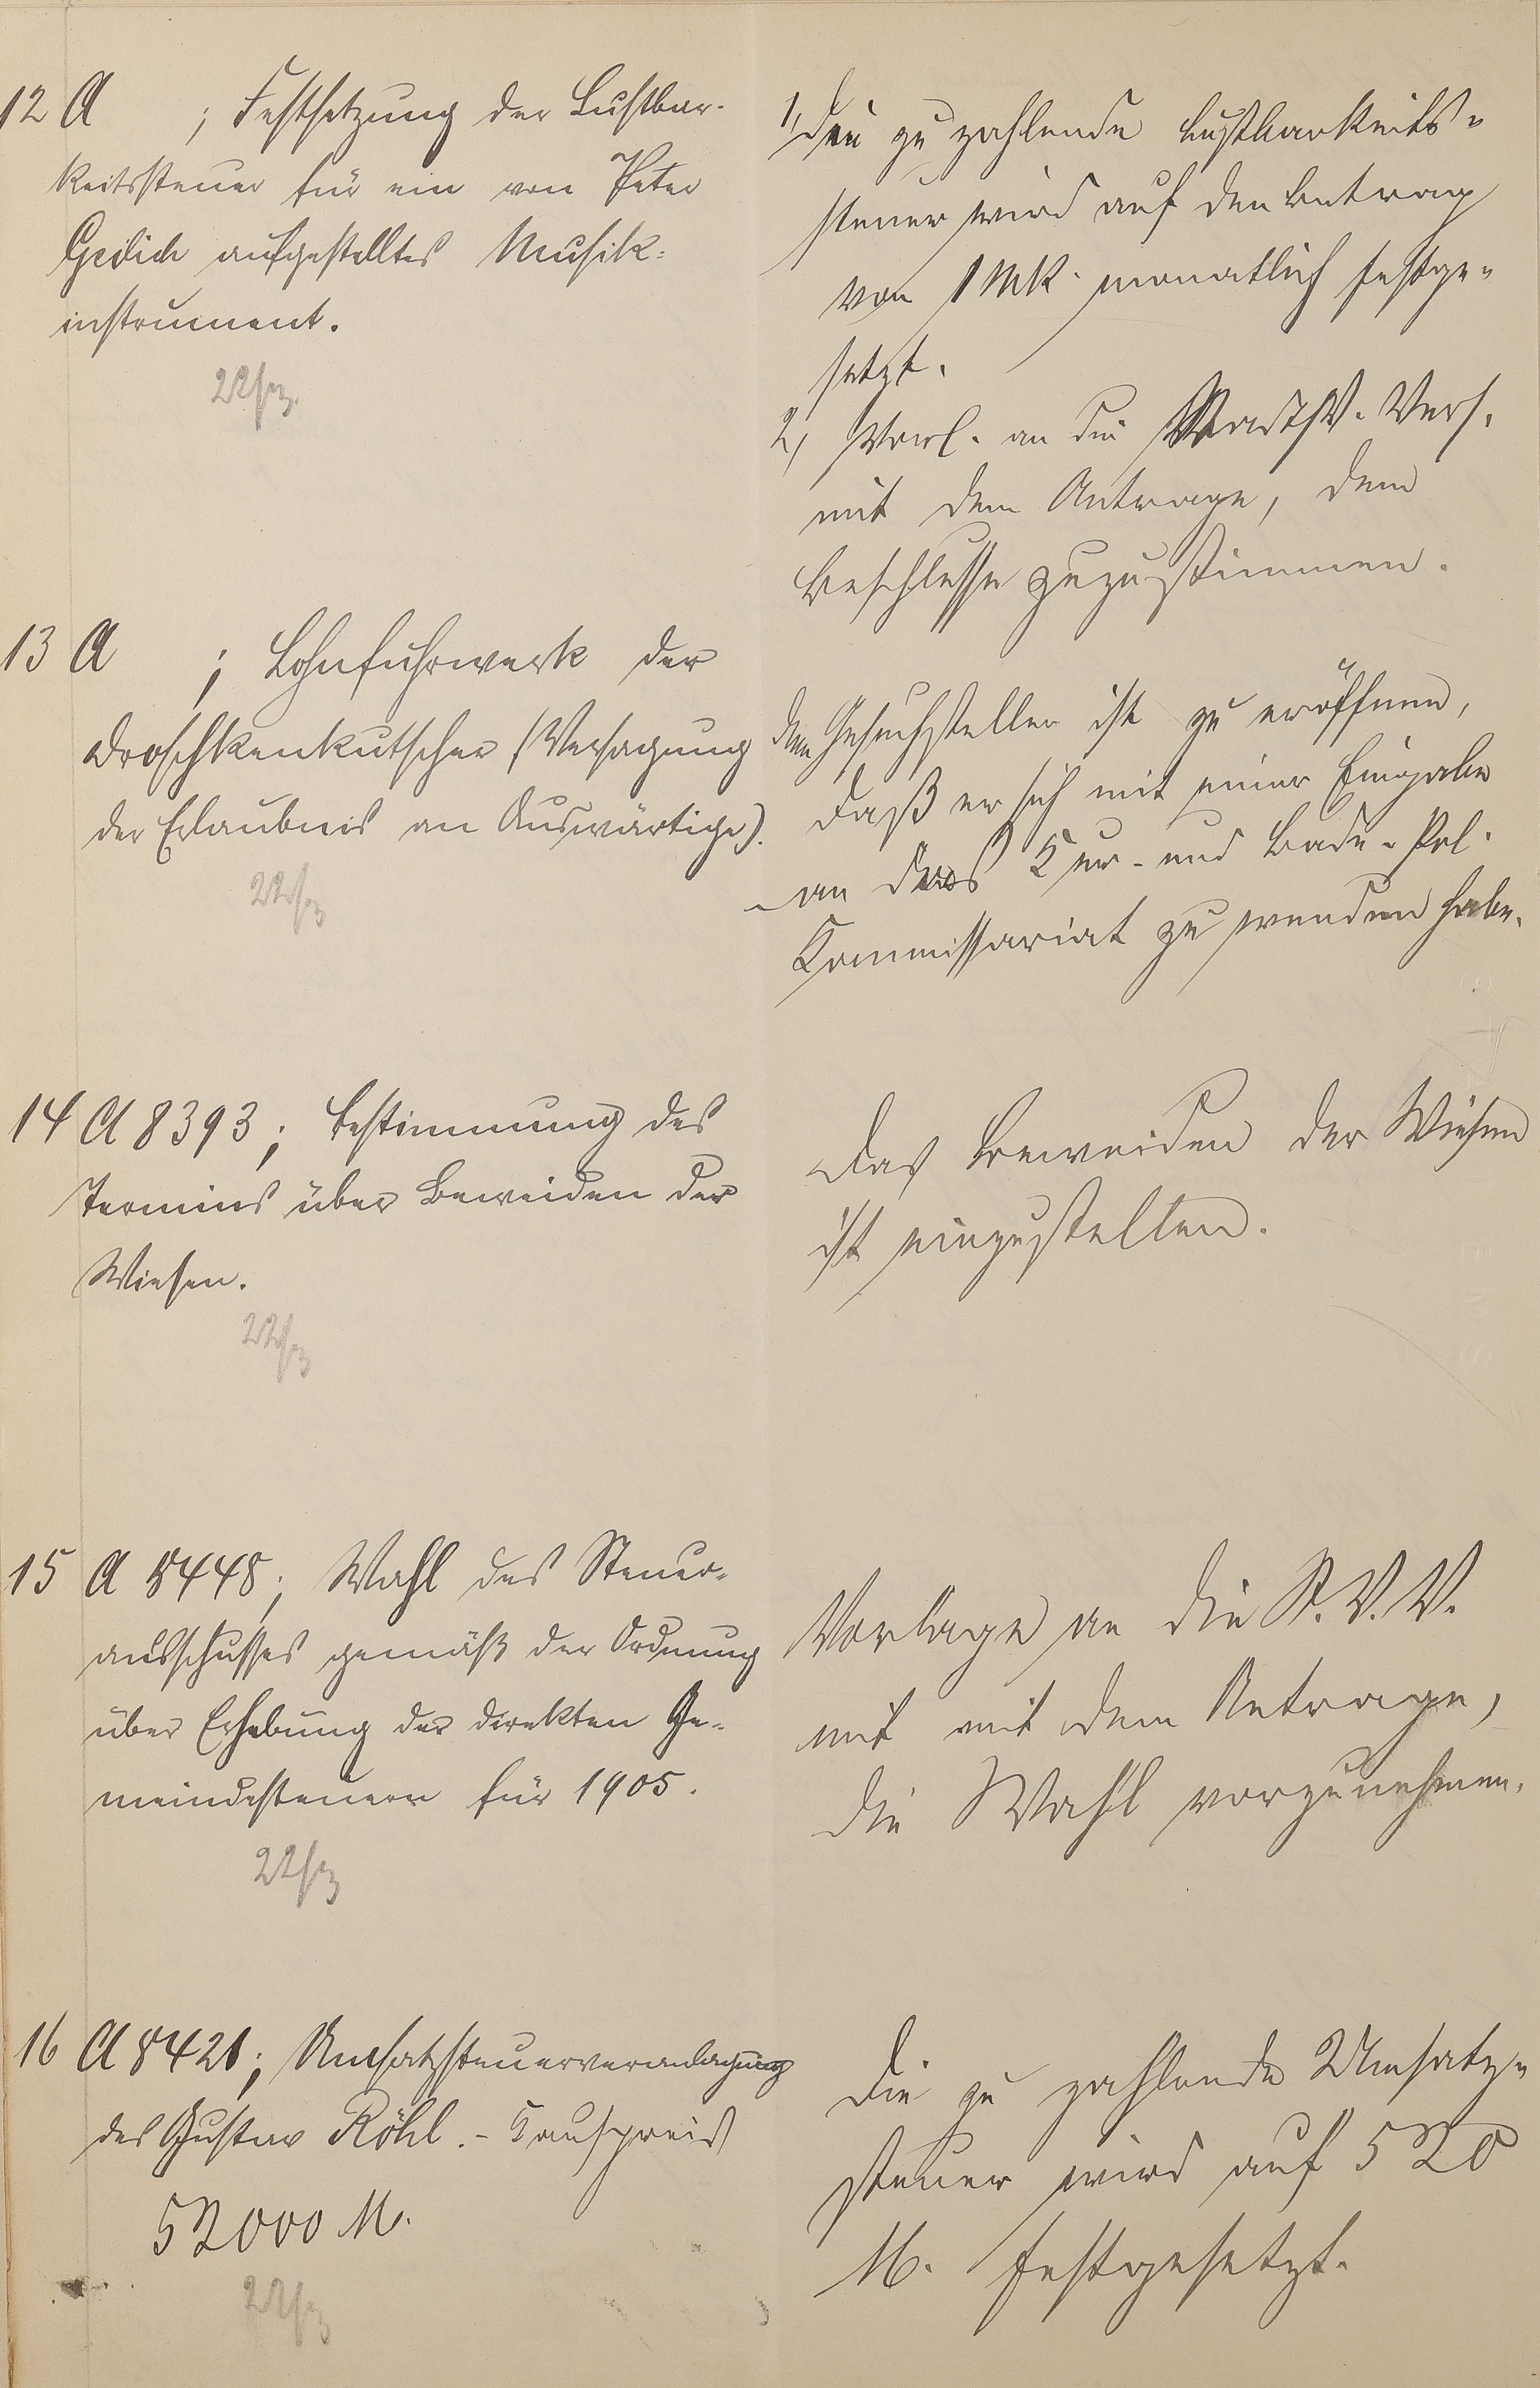 12 A ; Festsetzung der Lustbar-
keitssteuer für ein von Peter
Gedich aufgestelltes Musik-
instrument.
22/3
1, Die zu zahlende Lustbarkeits-
steuer wird auf den Betrag
von 1 Mk. monatlich festge-
setzt.
2, Vorl. an die Stadtv. Vers.
mit dem Antrage, dem
Beschlusse zuzustimmen.
13 A ; Lohnfuhrwerk der
Droschkenkutscher (Versagung
der Erlaubnis an Auswärtige).
22/3
Dem Gesuchsteller ist zu eröffnen,
daß er sich mit seiner Eingabe
an das Kur- und Bade-Pol.
Kommissariat zu wenden habe.
14 A 8393; Bestimmung des
Termins über Beweiden der
Wiesen.
22/3
Das Beweiden der Wiesen
ist einzustellen.
15 A 8448; Wahl des Steuer-
ausschusses gemäß der Ordnung
über Erhebung der direkten Ge-
meindesteuern für 1905.
22/3
Vorlage an die St. V. V.
mit mit dem Antrage,
die Wahl vorzunehmen.
16 A 8421; Umsatzsteuerveranlagung
des Gustav Röhl. - Kaufpreis
52000 M.
22/3
Die zu zahlende Umsatz-
steuer wird auf 520
M. festgesetzt.